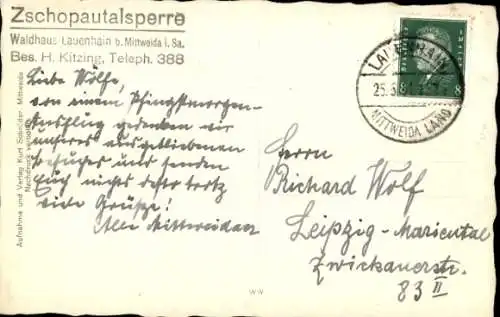 Zschopautalsperre
Waldhaus Lauenhain b. Mittweida i. Sa.
Bes. H. Kitzing, Teleph. 388
Liebe Wölfe,
von einem Pfingstmorgen-
Ausflug gedenken wir
unseres ausgebliebenen
Besuches und senden
Euch nichts desto trotz
viele Grüsse!
Alle Mittweidaer
Aufnahme und Verlag Kurt Schröder, Mittweida
Nachdruck verboten
LAUENHAIN
25.5.31
MITTWEIDA LAND
8
8
Herrn
Richard Wolf
Leipzig-Mariental
Zwickauerstr.
83 II